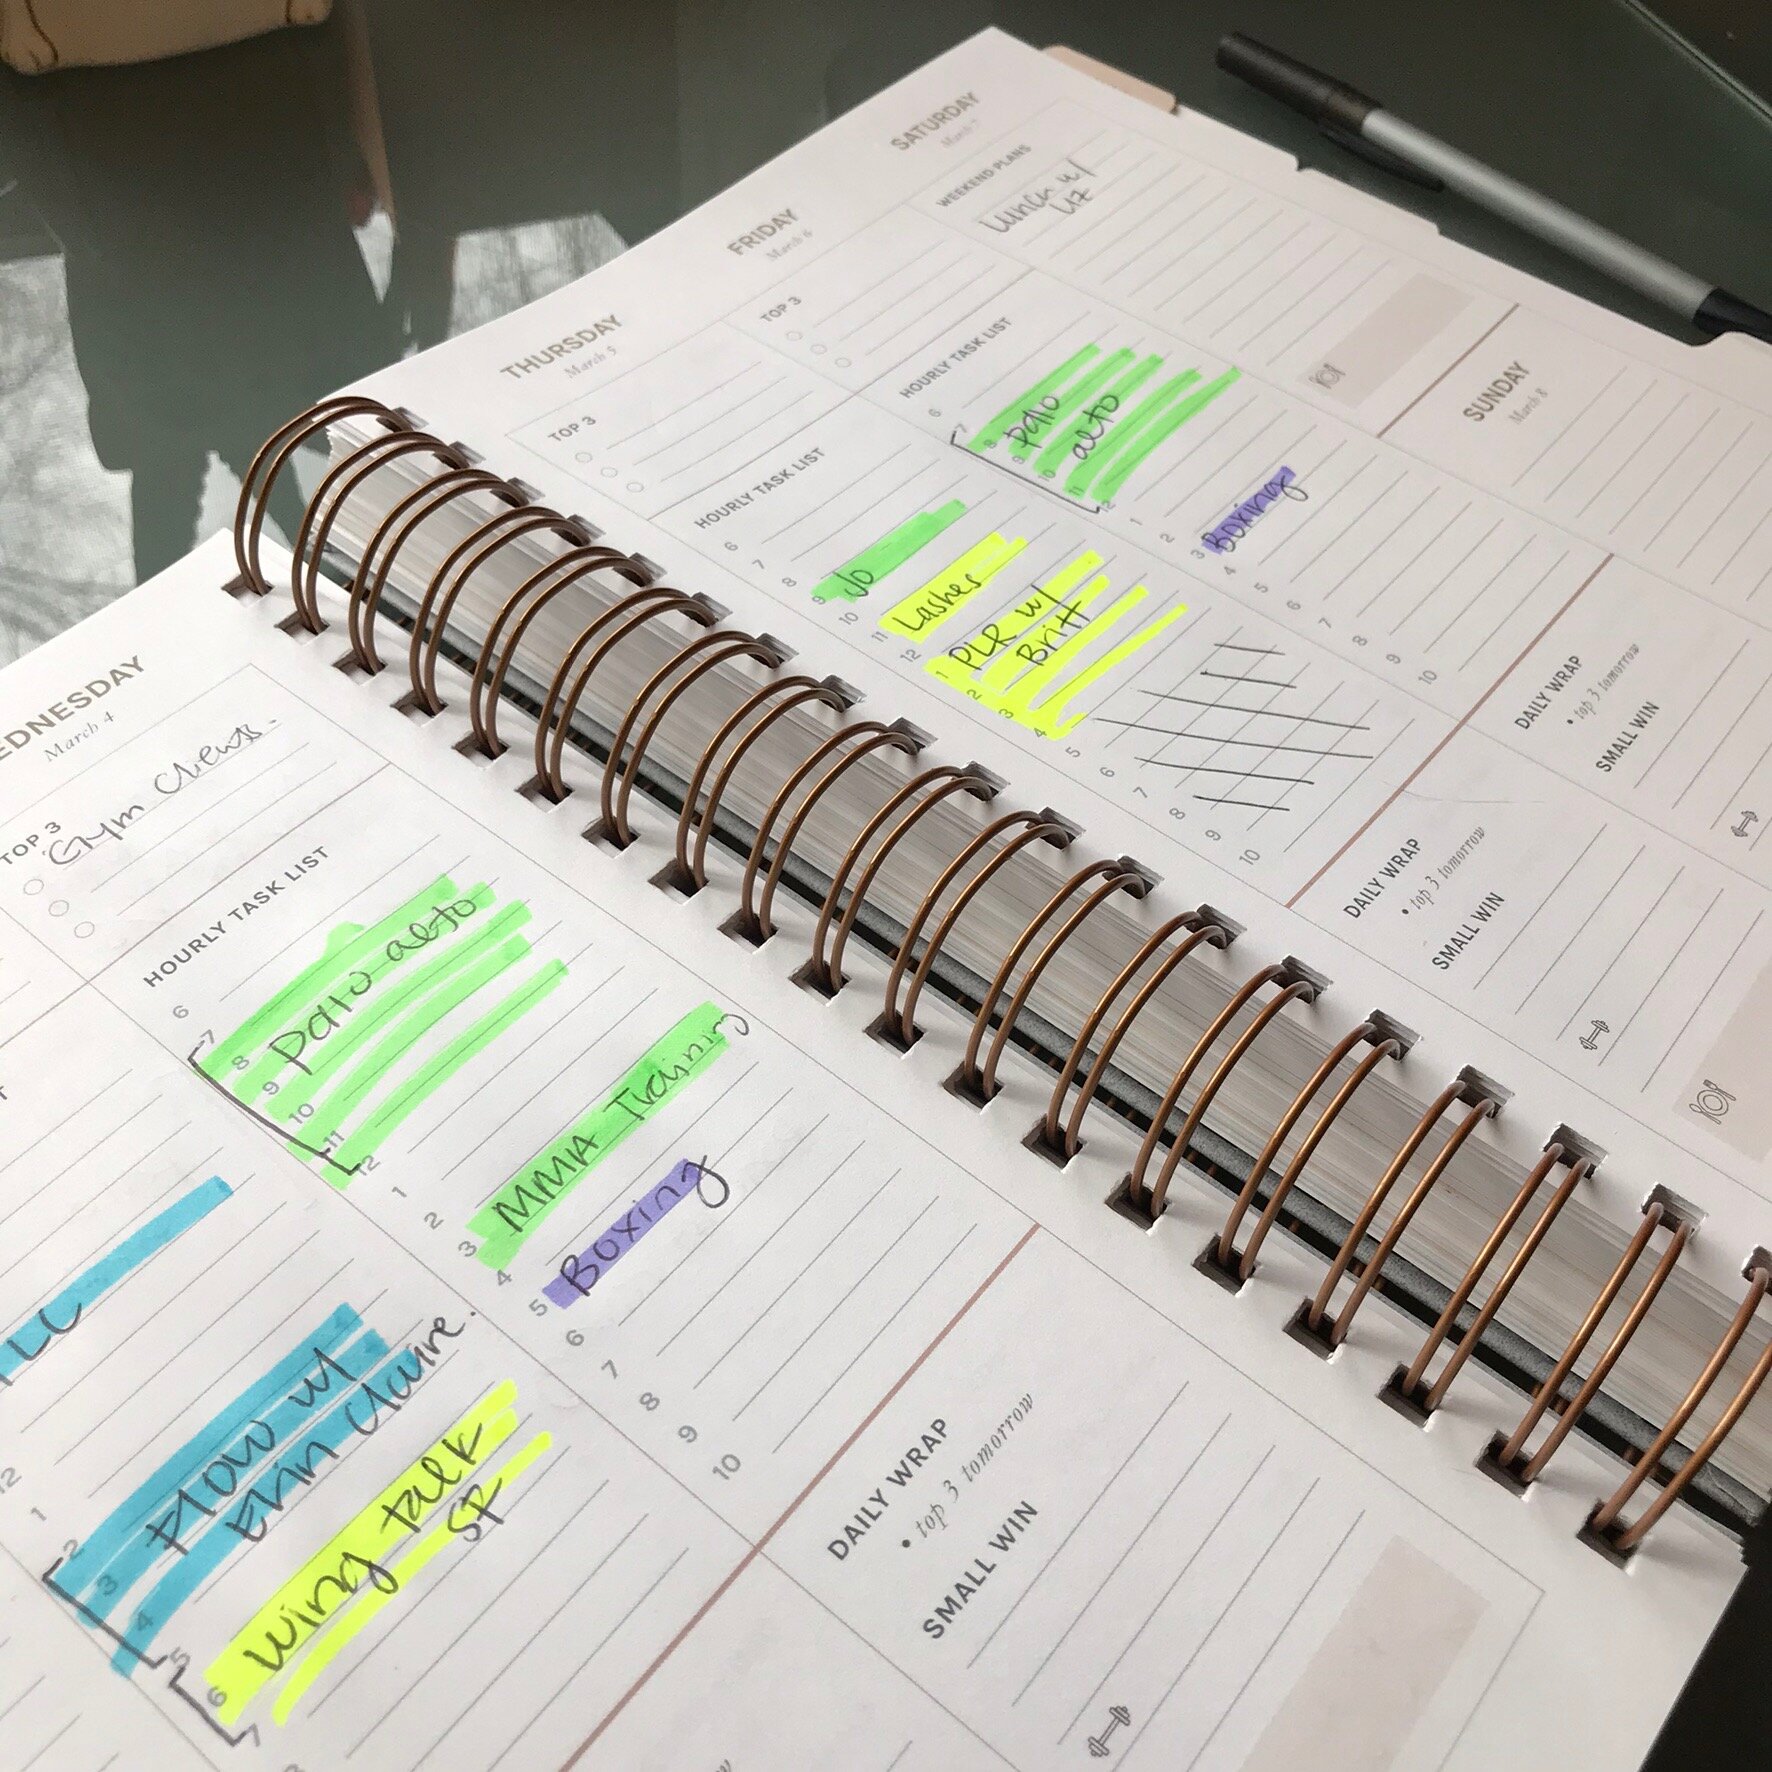 EDNESDAY
March 4
TOP 3
Gym Clients.
HOURLY TASK LIST
6
7
8
Pallo alto
9
10
11
12
1
2
3
MMA Training
4
5
Boxing
6
7
8
9
10
DAILY WRAP
• top 3 tomorrow
SMALL WIN
LC
12
1
2
3
Plow w/
4
Erin Claire.
5
6
Wing talk
SF
7
THURSDAY
March 5
TOP 3
HOURLY TASK LIST
6
7
8
9
Jo
10
11
Lashes
12
1
PLR w/
2
Britt
3
4
5
6
7
8
9
10
DAILY WRAP
• top 3 tomorrow
SMALL WIN
FRIDAY
March 6
TOP 3
HOURLY TASK LIST
6
7
8
Pallo
9
10
alto
11
12
1
2
3
Boxing
4
5
6
7
8
9
10
DAILY WRAP
• top 3 tomorrow
SMALL WIN
SATURDAY
March 7
WEEKEND PLANS
Lunch w/
SUNDAY
March 8